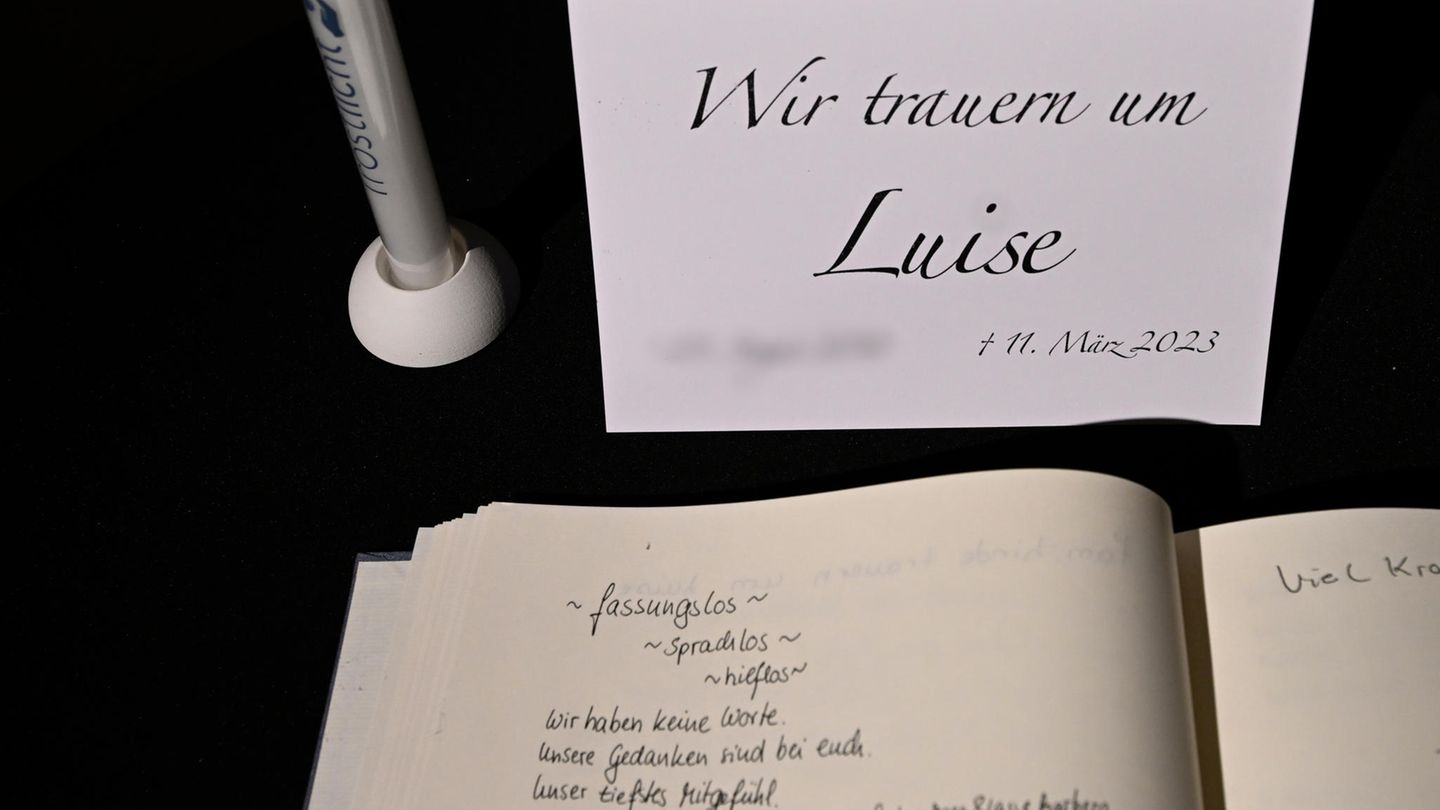 Trostlicht
Wir trauern um
Luise
† 11. März 2023
~ fassungslos ~
~ sprachlos ~
~ hilflos ~
Wir haben keine Worte.
Unsere Gedanken sind bei euch.
Unser tiefstes Mitgefühl.
Viel